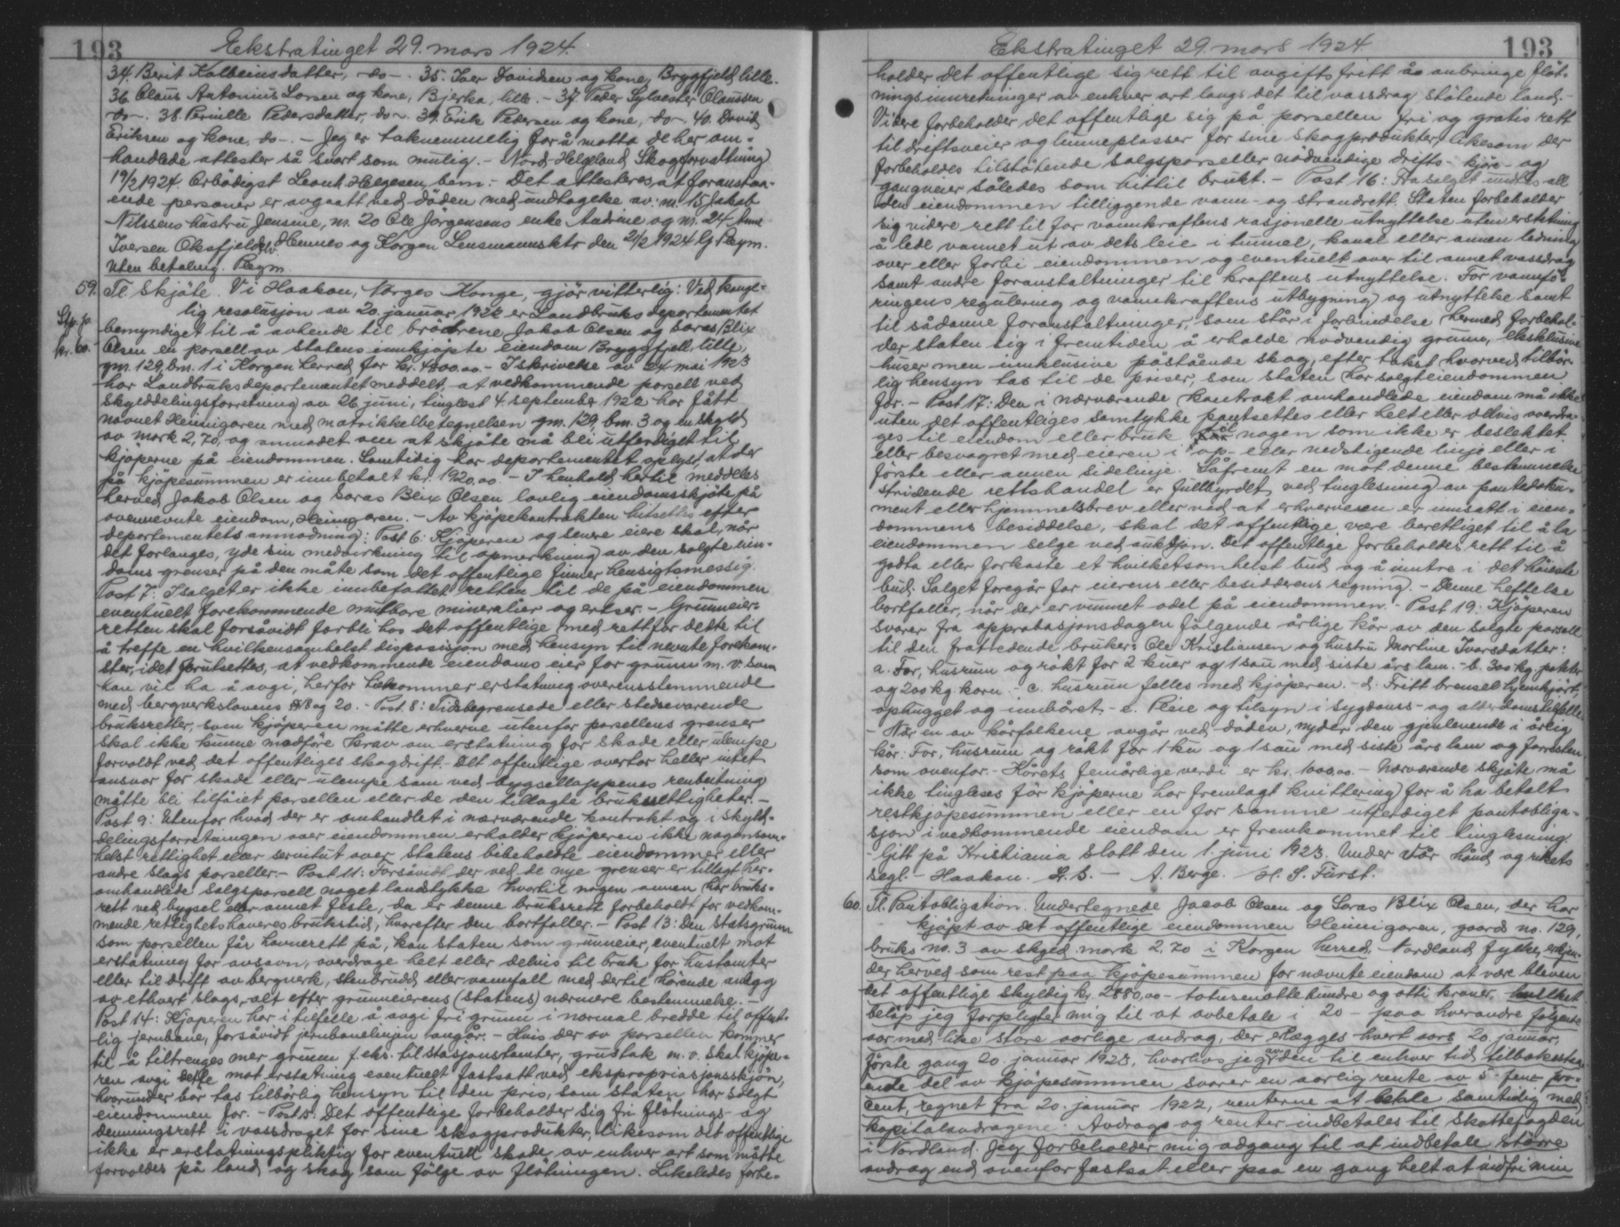 193
Ekstratinget 29. mars 1924.
34. Berit Kolbeinsdatter, -do-. 35. Iver Davidsen og kone, Bryggfjeld, lille.
36. Claus Antonius Larsen og kone, Bjerka, lille. - 37. Peder Sylvester Claussen
-do-. 38. Pernille Pedersdatter, do-. 39. Erik Pedersen og kone, -do-. 40. David
Eriksen og kone, do-. - Jeg er taknemmelig for å motta de her om-
handlede attester så snart som mulig. - Nord-Helgeland Skogforvaltning
19/2 1924. Ærbødigst Leont. Helgesen, bem.- Det attesteres, at foranstaa-
ende personer er avgaatt ved døden med undtagelse av: nr. 15 Jakob
Nilssens hustru Jensine, nr. 20 Ole Jørgensens enke Andrine og nr. 24 Arne
Iversen Oksfjeldm. Hemnes og Korgen Lensmannsktr den 21/2 1924 Rygm.
Uten betaling. Rygm.
59. Tl. Skjøte. Vi Haakon, Norges Konge, gjør vitterlig: Ved kongl-
lig resolusjon av 20. januar 1922 er Landbruksdepartementet
Stp. kr.
kr. 60.-
bemyndiget til å avhende til brødrene Jakob Olsen og Loras Blix
Olsen en parsell av statens innkjøpte eiendom Bryggfjell, lille,
gm. 129, bm. 1 i Korgen herred for kr. 4800.00. - I skrivelse av 24 mai 1923
har Landbruksdepartementet meddelt, at vedkommende parsell ved
skylddelingsforretning av 26 juni, tinglest 4. september 1922 har fått
navnet Heimigaren med matrikkelbetegnelsen gm. 129, bm. 3 og en skyld
av mark 2,70, og anmodet om at skjøte må bli utferdiget til
kjøperne på eiendommen. Samtidig har departementet oplyst, at der
på kjøpesummen er innbetalt kr. 1920.00. - I henhold hertil meddeles
herved Jakob Olsen og Loras Blix Olsen lovlig eiendomsskjøte på
ovennevnte eiendom, Heimigaren. - Av kjøpekontrakten hitsettes efter
departementets anmodning: Post 6: Kjøperen og senere eiere skal, når
det forlanges, yde sin medvirkning til opmerkning av den solgte eien-
doms grenser på den måte som det offentlige finner hensigtsmessig.
Post 7: I salget er ikke innbefattet retten til de på eiendommen
eventuelt forekommende mutbare mineralier og ertser. - Grunneier-
retten skal forsåvidt forbli hos det offentlige med rett for dette til
å treffe en hvilkensomhelst disposisjon med hensyn til nevnte forekom-
ster, idet forutsettes, at vedkommende eiendoms eier for grunn m. v. som
han vil ha å avgi, herfor bekommer erstatning overensstemmende
med bergverkslovens §§ 18 og 20. - Post 8: Tidsbegrensede eller stedsevarende
bruksretter, som kjøperen måtte erhverve utenfor parsellens grenser
skal ikke kunne medføre krav om erstatning for skade eller ulempe
forvoldt ved det offentliges skogdrift. Det offentlige overtar heller intet
ansvar for skade eller ulempe som ved bygsellappenes renbeitning
måtte bli tilføiet parsellen eller de den tillagte bruksrettigheter. -
Post 9: Utenfor hvad der er omhandlet i nærværende kontrakt og i skyld-
delingsforretningen over eiendommen erholder kjøperen ikke nogensom-
helst rettighet eller servitut over statens bibeholdte eiendommer eller
andre slags parseller. - Post 11: Forsåvidt der ved de nye grenser er tillagt her-
omhandlede salgsparsell noget landstykke hvortil nogen annen har bruks-
rett ved bygsel eller annet feste, da er denne bruksrett forbeholdt for vedkom-
mende rettighetshaveres brukstid, hvorefter den bortfaller. - Post 13: Den statsgrunn
som parsellen får havnerett på, kan staten som grunneier, eventuelt mot
erstatning for avsavn, overdrage helt eller delvis til bruk for hustomter
eller til drift av bergverk, stenbrudd eller vannfall med dertil hørende anlegg
av ethvert slags, alt efter grunneierens (statens) nærmere bestemmelse. -
Post 14: Kjøperen har i tilfelle å avgi fri grunn i normal bredde til offent-
lig jernbane, forsåvidt jernbanelinjen angår. - Hvis der av parsellen kommer
til å tiltrenges mer grunn f. eks. til stasjonstomter, grustak m. v. skal kjøpe-
ren avgi dette mot erstatning eventuelt fastsatt ved ekspropriasjonsskjøn,
hvorunder bør tas tilbørlig hensyn til den pris, som staten har solgt
eiendommen for. - Post 15. Det offentlige forbeholder sig fri fløtnings- og
demningsrett i vassdraget for sine skogprodukter, likesom det offentlige
ikke er erstatningspliktig for eventuell skade av enhver art som måtte
forvoldes på land og skog som følge av fløtningen. Likeledes forbe-
Ekstratinget 29. mars 1924
193
holder det offentlige sig rett til avgiftsfritt å anbringe fløt-
ningsinnretninger av enhver art langs det til vassdrag støtende land. -
Videre forbeholder det offentlige sig på parsellen fri og gratis rett
til driftsveier og lunneplasser for sine skogprodukter, likesom der
forbeholdes tilstøtende salgsparseller nødvendige drifts- kjøre- og
gangveier således som hittil brukt. - Post 16: Fra salget undtas all
den eiendommen tilliggende vann- og strandrett. Staten forbeholder
sig videre rett til for vannkraftens rasjonelle utnyttelse uten erstatning
å lede vannet ut av dets leie i tunnel, kanal eller annen ledning
over eller forbi eiendommen og eventuelt over til annet vassdrag
samt andre foranstaltninger til kraftens utnyttelse. For vannfø-
ringens regulering og vannkraftens utbygning og utnyttelse samt
til sådanne foranstaltninger, som står i forbindelse hermed, forbehol-
der staten sig i fremtiden å erholde nødvendig grunn, eksklusive
huser men innklusive påstående skog, efter takst hvorved tilbør-
lig hensyn tas til de priser, som staten har solgt eiendommen
for. - Post 17: Den i nærværende kontrakt omhandlede eiendom må ikke
uten det offentliges samtykke pantsettes eller helt eller delvis overdra-
ges til eiendom eller bruk til nogen som ikke er beslektet
eller besvogret med eieren i op- eller nedstigende linje eller i
første eller annen sidelinje. Såfremt en mot denne bestemmelse
stridende rettshandel er fullbyrdet ved tinglesning av pantedoku-
ment eller hjemmelsbrev eller ved at erhververen er innsatt i eien-
dommens besiddelse, skal det offentlige være berettiget til å la
eiendommen selge ved auksjon. Det offentlige forbeholdes rett til å
godta eller forkaste et hvilketsomhelst bud og å inntre i det høieste
bud. Salget foregår for eierens eller besidderens regning. - Denne heftelse
bortfaller, når der er vunnet odel på eiendommen. - Post 19: Kjøperen
svarer fra approbasjonsdagen følgende årlige kår av den solgte parsell
til den fratredende bruker Ole Kristiansen og hustru Martine Ivarsdatter:
a. For, husrum og røkt for 2 kuer og 1 sau med siste års lam. - b. 300 kg. poteter
og 200 kg. korn. - c. husrum felles med kjøperen. - d. Fritt brensel hjemkjørt,
ophugget og innbåret. - e. Pleie og tilsyn i sygdoms- og alderdomstilfelle.
- Når en av kårfolkene avgår ved døden, nyder den gjenlevende i årlig
kår: For, husrum og røkt for 1 ku og 1 sau med siste års lam og forresten
som ovenfor. - Kårets femårlige verdi er kr. 1000,00. - Nærværende skjøte må
ikke tingleses før kjøperne har fremlagt kvittering for å ha betalt
restkjøpesummen eller en for samme utferdiget pantobliga-
sjon i vedkommende eiendom er fremkommet til tinglesning.
- Gitt på Kristiania slott den 1. juni 1923. Under Vår hånd og rikets
segl. - Haakon. L. S. - A. Berge. H. S. Fürst.
60. Tl. Pantobligation. Undertegnede Jacob Olsen og Loras Blix Olsen, der har
kjøpt av det offentlige eiendommen Heimigaren, gaards no. 129,
bruks no. 3 av skyld mark 2.70 i Korgen herred. - Nordland fylke, erkjen-
der herved som rest paa kjøpesummen for nævnte eiendom at være bleven
det offentlige skyldig kr. 2880,00 - totusenottehundre og otti kroner, hvilket
beløp jeg forpligter mig til at avbetale i 20 - paa hverandre følgende
aar med like store aarlige avdrag, der erlægges hvert aars 20 januar,
første gang 20. januar 1923, hvorhos jeg av den til enhver tid tilbakestaa-
ende del av kjøpesummen svarer en aarlig rente av 5 - fem pro-
cent, regnet fra 20. januar 1922, renterne at betale samtidig med
kapitalavdragene. Avdrag og renter indbetales til Skattefogden
i Nordland. Jeg forbeholder mig adgang til at indbetale større
avdrag end ovenfor fastsat eller paa en gang helt at indfri min